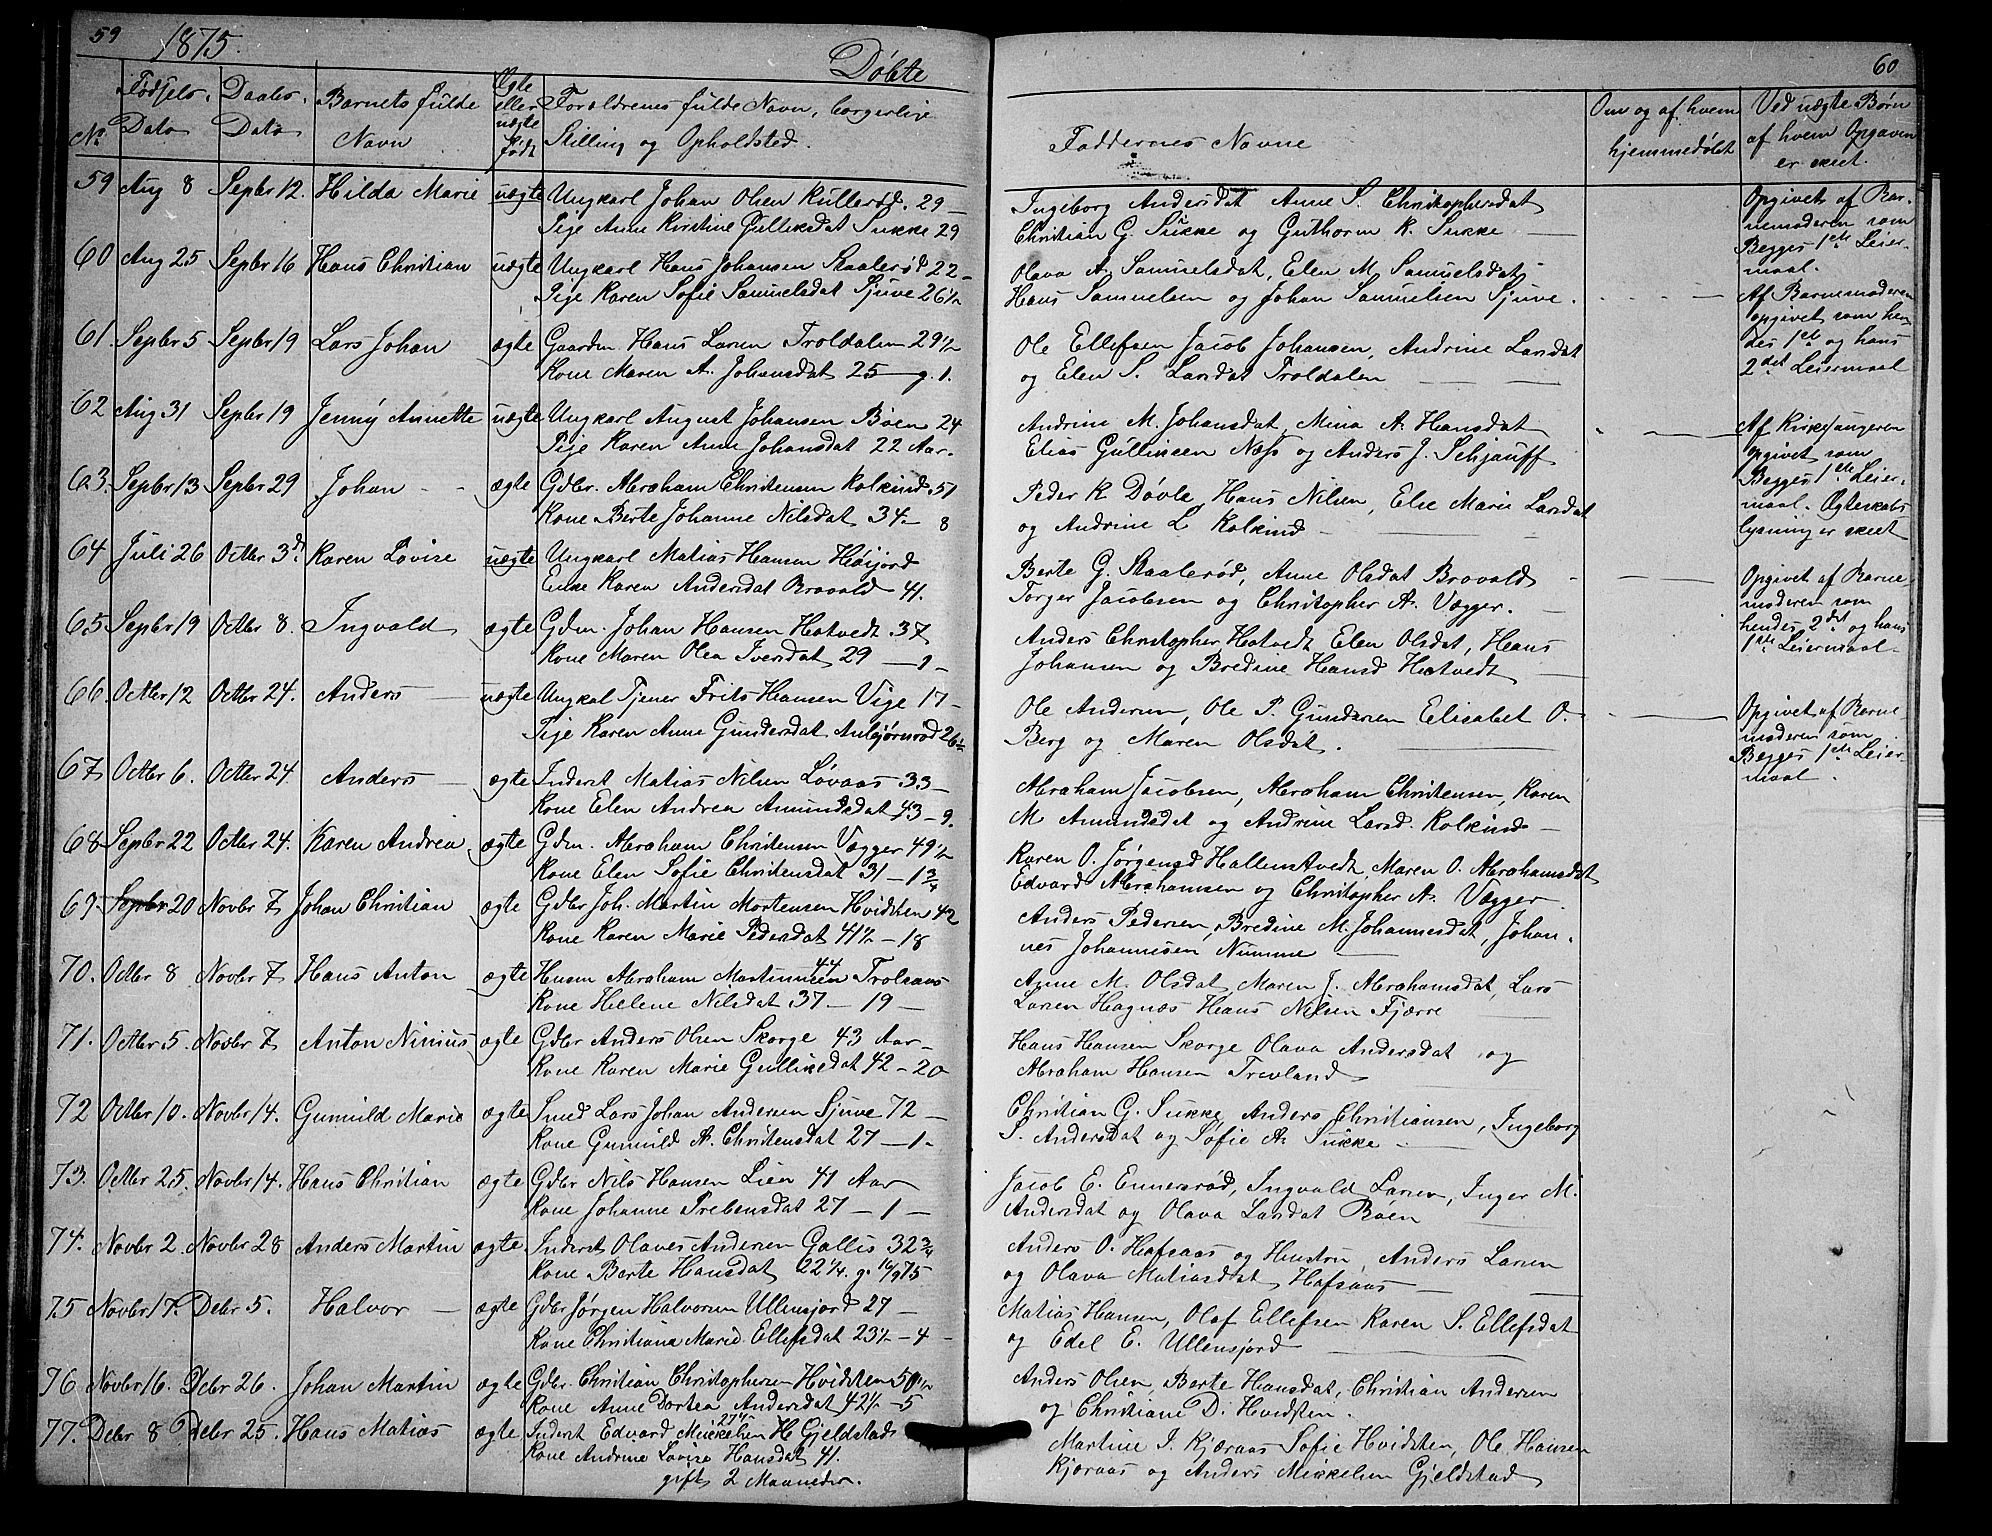 59 1875. Døbte
No. Fødsels- Dato Daabs- Dato Barnets fulde Navn Ægte eller uægte født Forældrenes fulde Navn, borgerlige Stilling og Opholdsted.
59 Aug 8 Sepbr 12. Hilda Marie uægte Ungkarl Johan Olsen Kullerød. 29 –
Pige Anne Kirstine Gulliksdat Sukke 29
60 Aug 25 Sepbr 16 Hans Christian uægte Ungkarl Hans Johansen Staalerød 22 –
Pige Karen Sofie Samuelsdat Sjuve 26½
61. Sepbr 5 Sepbr 19 Lars Johan ægte Gaardm Hans Larsen Troldalen 29½
Kone Maren A. Johansdat 25 – g. 1.
62 Aug 31 Sepbr 19 Jenny Annette uægte Ungkarl August Johansen Bøen 24
Pige Karen Anne Johansdat 22 Aar.
63. Sepbr 13 Sepbr 29 Johan – – ægte Gdbr. Abraham Christensen Kolkind 51
Kone Berte Johanne Nilsdat 34 – 8
64 Juli 26 Octbr 3d. Karen Lovise uægte Ungkarl Matias Hansen Høijord
Enke Karen Andersdat Brovald 41.
65 Sepbr 19 Octbr 8. Ingvald ægte Gdm. Johan Hansen Hotvedt 37
Kone Maren Olea Iversdat 29 – 1 –
66 Octbr 12 Octbr 24. Anders – uægte Ungkal Tjener Frits Hansen Vige 17 –
Pige Karen Anne Gundersdat Anbjørnrød 26½
67 Octbr 6. Octbr 24. Anders – ægte Inderst Matias Nilsen Løvaas 33 –
Kone Elen Andrea Amundsdat 43 – 9.
68 Sepbr 22 Octbr 24. Karen Andrea ægte Gdm. Abraham Christensen Vægger 49½
Kone Elen Sofie Christensdat 31 – 1 ¾
69. Sepbr 20 Novbr 7 Johan Christian ægte Gdbr Joh. Martin Mortensen Hvidsten 42
Kone Karen Marie Pedersdat 41½ – 18
70. Octbr 8 Novbr 7 Hans Anton ægte Husm Abraham Martinusen 44 Trolsaas
Kone Helene Nilsdat 37 – 19 –
71. Octbr 5. Novbr 7 Anton Ninius ægte Gdbr Anders Olsen Skorge 43 Aar –
Kone Karen Marie Gulliksdat 42 – 20
72 Octbr 10. Novbr 14. Gunnild Marie ægte Smed Lars Johan Andersen Sjuve 72 –
Kone Gunnild A. Christensdat 27 – 1 –
73. Octbr 25. Novbr 14. Hans Christian ægte Gdbr Nils Hansen Lien 41 Aar
Kone Johanne Prebensdat 27 – 1 –
74. Novbr 2. Novbr 28 Anders Martin ægte Inderst Olaves Andersen Gallis 32 ¾
Kone Berte Hansdat 22¼. g. 16/9 75
75 Novbr 17. Debr 5. Halvor – ægte Gdbr Jørgen Halvorsen Ullensjord 27 –
Kone Christiana Marie Ellefsdat 23½ – 4 –
76 Novbr 16. Debr 26. Johan Martin ægte Gdbr Christian Christophersen Hvidsten 50½
Kone Anne Dortea Andersdat 42½ – 5
77. Debr 8 Debr 25. Hans Matias ægte Inderst Edvard Mikkelsen 27½ H. Gjeldstad
Kone Andrine Lovise Hansdat 41.
gift 2 Maaneder.
60
Faddernes Navne Om og af hvem hjemmedøbt Ved uægte Børn af hvem Opgaven er skeet.
Ingeborg Andersdat Anne S. Christophersdat
Christian G. Sukke og Guthorm K. Sukke –
Opgivet af Bar-
nemoderen som
Begges 1ste Leier-
maal.
Olava A. Samuelsdat, Elen M. Samuelsdat
Hans Samuelsen og Johan Samuelsen Sjuve.
Af Barnemoderen
opgivet som hen-
des 1ste og hans
2det Leiermaal
Ole Ellefsen Jacob Johansen, Andrine Larsdat
og Elen S. Larsdat Troldalen
Andrine M. Johansdat, Mina A. Hansdat
Elias Gullinsen Næss og Anders J. Schjauff
Af Kirkesangeren
opgivet som
Begges 1ste Leier-
maal. Ægteskabs
lysning er skeet
Peder K. Døvle, Hans Nilsen, Else Marie Larsdat
og Andrine L. Kolkind
Berte G. Staalerød, Anne Olsdat Brovald
Torger Jacobsen og Christopher A. Vægger.
Opgivet af Barne
moderen som
hendes 2det og hans
1ste Leiermaal
Anders Christopher Hotvedt Elen Olsdat, Hans
Johansen og Bredine Hansd Hotvedt
Ole Andersen, Ole P. Gundersen Elisabet O.
Berg og Maren Olsdat.
Opgivet af Barne
moderen som
Begges 1ste Leier-
maal.
Abraham Jacobsen, Abraham Christensen, Karen
M. Amundsdat og Andrine Larsd. Kolkind
Karen O. Jørgensd Hallenstvedt, Maren O. Abrahamsdat
Edvard Abrahamsen og Christopher A. Vægger.
Anders Pedersen, Bredine M. Johannesdat, Johan-
nes Johannesen Numme
Anne M. Olsdat, Maren J. Abrahamsdat, Lars
Larsen Hagnæs Hans Nilsen Fjærre
Hans Hansen Skorge Olava Andersdat og
Abraham Hansen Trevland
Christian G. Sukke, Anders Christiansen, Ingeborg
S. Andersdat og Sofie A. Sukke –
Jacob E. Ennersrød, Ingvald Larsen, Inger M.
Andersdat og Olava Larsdat Bøen
Anders O. Hafsaas og Hustru, Anders Larsen
og Olava Matiasdat Hafsaas
Matias Hansen, Olaf Ellefsen Karen S. Ellefsdat
og Edel E. Ullensjord
Anders Olsen, Berte Hansdat, Christian Andersen
og Christiane D. Hvidsten.
Martine I. Kjæraas Sofie Hvidsten, Ole Hansen
Kjæraas og Anders Mikkelsen Gjeldstad